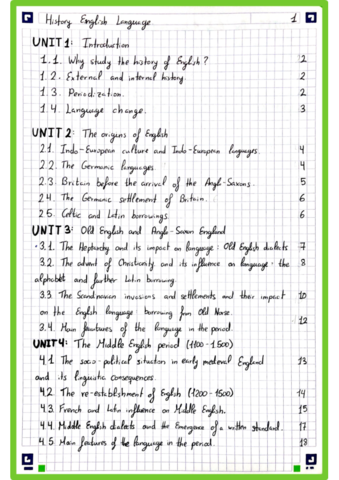 History English Language. 1
UNIT 1: Introduction
1.1. Why study the history of English? 2
1.2. External and internal history. 2
1.3. Periodization. 2
1.4. Language change. 3
UNIT 2: The origins of English
2.1. Indo-European culture and Indo-European languages. 4
2.2. The Germanic languages. 4
2.3. Britain before the arrival of the Anglo-Saxons. 5
2.4. The Germanic settlement of Britain. 6
2.5. Celtic and Latin borrowings. 6
UNIT 3: Old English and Anglo-Saxon England
3.1. The Heptarchy and its impact on language: Old English dialects 7
3.2. The advent of Christianity and its influence on language: the 8
alphabet and further Latin borrowing.
3.3. The Scandinavian invasions and settlements and their impact 10
on the English language borrowing from Old Norse.
3.4. Main features of the language in the period. 12
UNIT 4: The Middle English period (1100-1500)
4.1. The socio-political situation in early medieval England 13
and its linguistic consequences.
4.2. The re-establishment of English (1200-1500) 14
4.3. French and Latin influence on Middle English. 15
4.4. Middle English dialects and the Emergence of a written standard. 17
4.5. Main features of the language in the period. 18